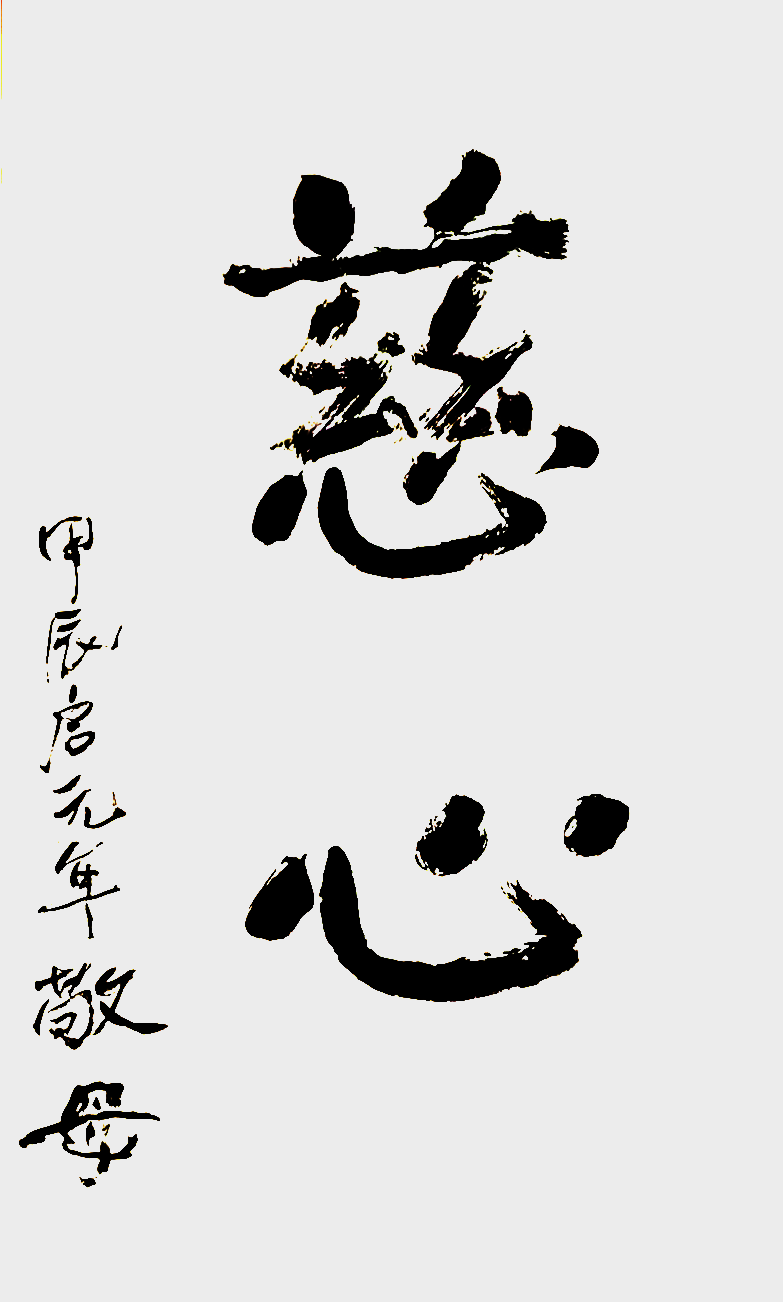 慈心
甲辰启元年敬